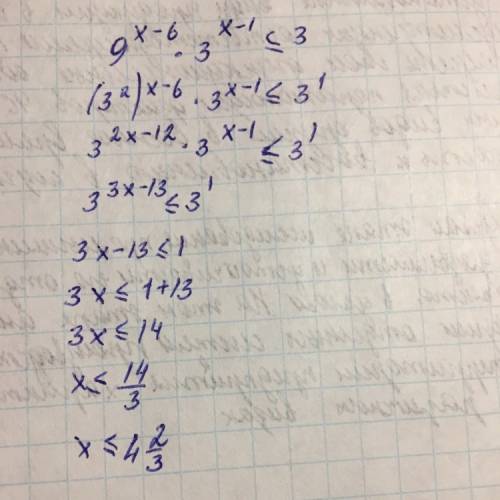 9^{x-6} · 3^{x-1} ≤ 3
(3^2)^{x-6} · 3^{x-1} ≤ 3^1
3^{2x-12} · 3^{x-1} ≤ 3^1
3^{3x-13} ≤ 3^1
3x-13 ≤ 1
3x ≤ 1+13
3x ≤ 14
x ≤ \frac{14}{3}
x ≤ 4\frac{2}{3}